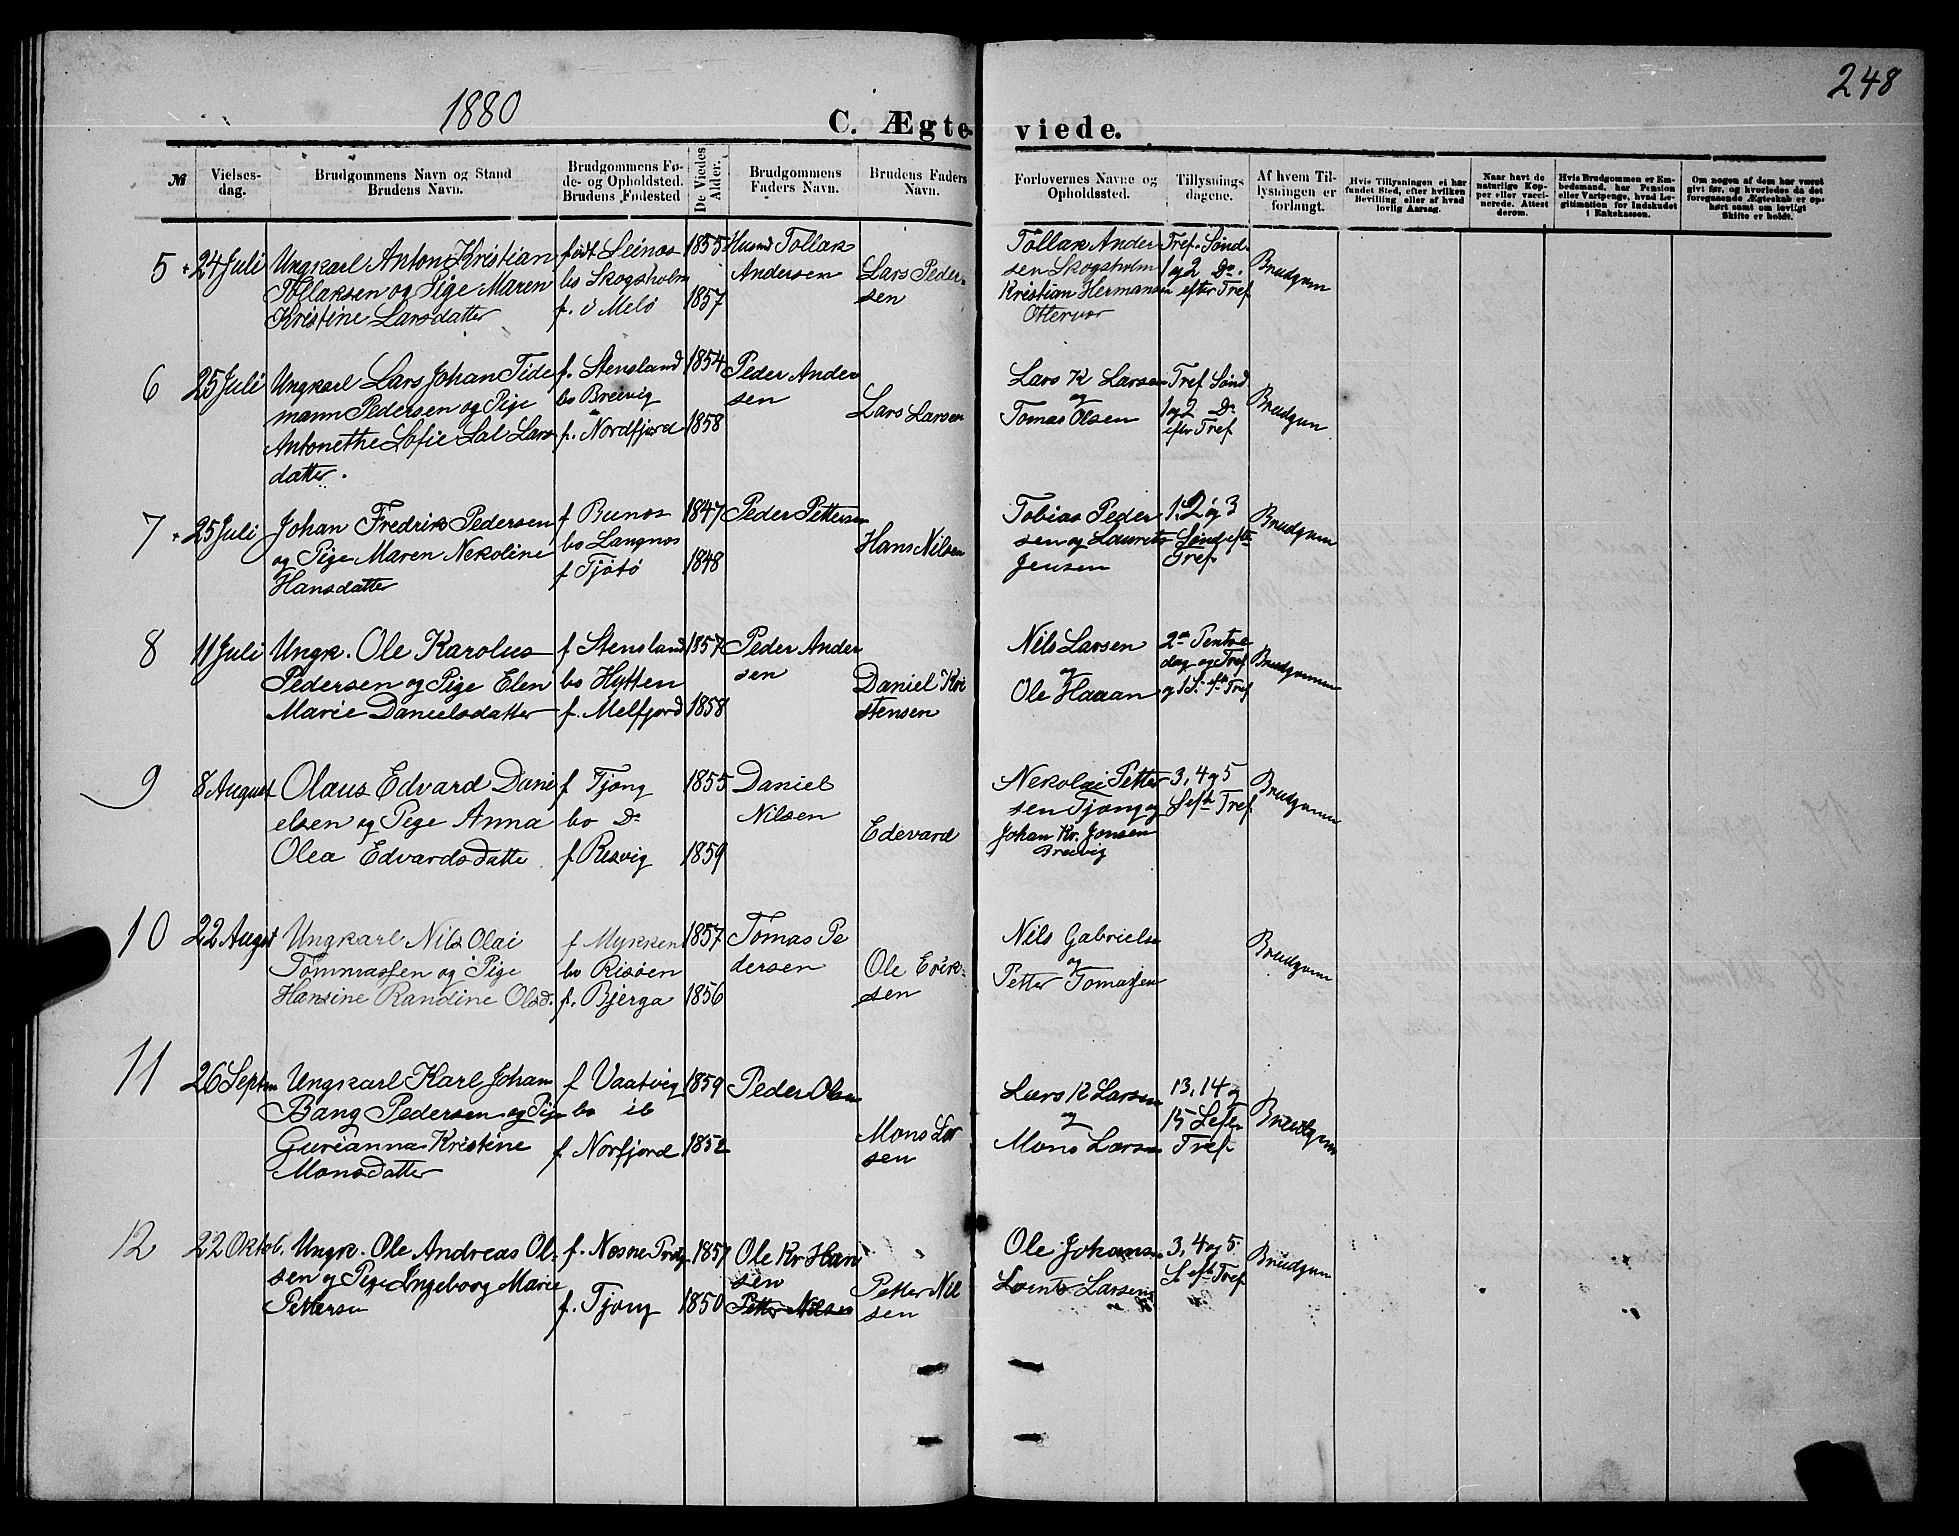 1880
248
C. Ægteviede.
№
Vielses-
dag.
Brudgommens Navn og Stand
Brudens Navn.
Brudgommens Fø-
de- og Opholdsted.
Brudens Fødested
De Viedes
Alder.
Brudgommens
Faders Navn.
Brudens Faders
Navn.
Forlovernes Navne og
Opholdssted.
Tillysnings
dagene.
Af hvem Til-
lysningen er
forlangt.
Hvis Tillysningen ei har
fundet Sted, efter hvilken
Bevilling eller af hvad
lovlig Aarsag.
Naar havt de
naturlige Kop-
per eller vacci-
nerede. Attest
derom.
Hvis Brudgommen er Em-
bedsmand, har Pension
eller Vartpenge, hvad Le-
gitimation for Indskudet
i Enkekassen.
Om nogen af dem har været
givt før, og hvorledes da det
foregaaende Ægteskab er op-
hørt samt om lovligt
Skifte er holdt.
5
24 Juli
Ungkarl Anton Kristian
Tollaksen og Pige Maren
Kristine Larsdatter
født Leinos
bo Skogsholm
f. i Melö
1855
1857
Husmd Tollak
Andersen
Lars Peder-
sen
Tollak Ander
sen Skogsholm
Kristian Hermansen
Ottervær
Tref. Sønd.
1 og 2 Do.
efter Tref
Brudgum
6
25 Juli
Ungkarl Lars Johan Tide
mann Pedersen og Pige
Antonethe Sofie Sal Lars
datter.
f. Stensland
bo Breivig
f. Nordfjord
1854
1858
Peder Ander
sen
Lars Larsen
Lars K Larsen
og
Tomas Olsen
Tref Sønd
1 og 2 Do
efter Tref
Brudgum
7
25 Juli
Johan Fredrik Pedersen
og Pige Maren Nekoline
Hansdatter
f Bunos
bo Langnos
f Tjötö
1847
1848
Peder Pettersen
Hans Nilsen
Tobias Peder
sen og Laurits
Jensen
1. 2 og 3
Sønd eft
Tref
Brudgum
8
11 Juli
Ungk. Ole Karolus
Pedersen og Pige Elen
Marie Danielsdatter
f Stensland
bo Hytten
f. Melfjord
1857
1858
Peder Ander
sen
Daniel Kri
stensen
Nils Larsen
og
Ole Haaan
2n Pentse
dag og Tref
og 1 S. eft Tref
Brudgummen
9
8 August
Olaus Edvard Dani
elsen og Pige Anna
Olea Edvardsdatte
f Tjong
bo Do
f. Resvig
1855
1859
Daniel
Nilsen
Edevard
Nekolai Petter
sen Tjong og
Johan Kr. Jonsen
Breivig
3, 4 og 5
S eft Tref
Brudgum
10
22 August
Ungkarl Nils Olai
Tommassen og Pige
Hansine Randine Olsd.
f Mykken
bo Risöen
f. Bjerga
1857
1856
Tomas Pe
dersen
Ole Erik-
sen
Nils Gabrielse
og
Petter Tomassen
Brudgum
11
26 Septm
Ungkarl Karl Johan
Bang Pedersen og Pige
Gurianna Kristine
Monsdatter
f Vaatvig
bo ib
f Norfjord
1859
1852
Peder Olsen
Mons Lar
sen
Lars K Larsen
og
Mons Larsen
13, 14 og
15 S efter
Tref
Brudgum
12
22 Oktob.
Ungk. Ole Andreas Ol-
sen og Pige Ingeborg Marie
Pettersen
f. Nesne Præg
f. Tjong
1851
1850
Ole Kr Han
sen
Petter Nilsen
Petter Nil
sen
Ole Johans
Larsen
3, 4 og 5
S. eft Tref
Brudgum